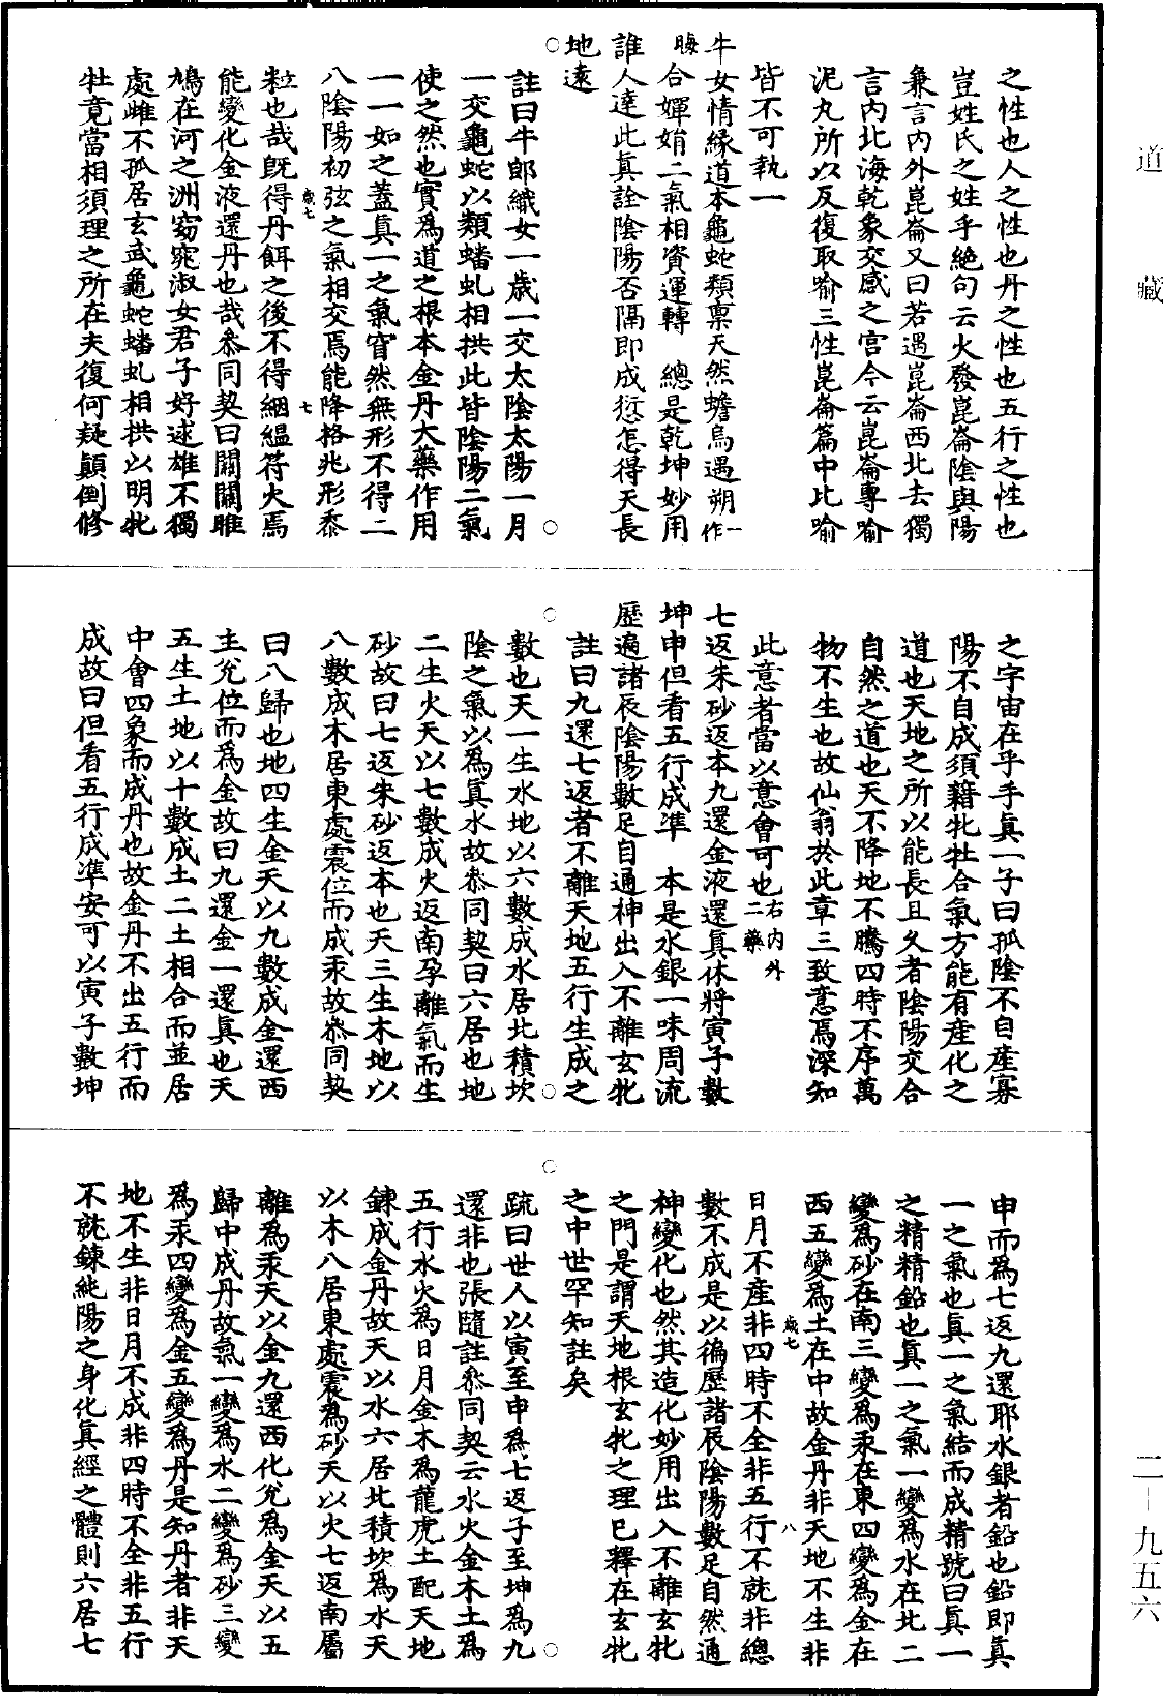 之性也人之性也丹之性也五行之性也
豈姓氏之姓乎絶句云火發崑崙陰與陽
兼言内外崑崙又曰若遇崑崙西北去獨
言内北海乾象交感之宫今云崑崙專喻
泥丸所以反復取喻三性崑崙篇中比喻
皆不可執一
牛女情緣道本龜蛇類禀天然蟾烏遇朔一作晦
合嬋娟二氣相資運轉　總是乾坤妙用
誰人達此眞詮陰陽否隔即成愆怎得天長
地遠
註曰牛郎織女一歲一交太陰太陽一月
一交龜蛇以類蟠虬相拱此皆陰陽二氣
使之然也實爲道之根本金丹大藥作用
一一如之蓋眞一之氣窅然無形不得二
八陰陽初弦之氣相交焉能降格兆形黍
歲七　七
粒也哉既得丹餌之後不得絪縕符火焉
能變化金液還丹也哉叅同契曰關關雎
鳩在河之洲窈窕淑女君子好逑雄不獨
處雌不孤居玄武龜蛇蟠虬相拱以明牝
牡竟當相須理之所在夫復何疑顛倒修
之宇宙在乎手眞一子曰孤陰不自産寡
陽不自成須藉牝牡合氣方能有産化之
道也天地之所以能長且久者陰陽交合
自然之道也天不降地不騰四時不序萬
物不生也故仙翁於此章三致意焉深知
此意者當以意會可也右内外二藥
七返朱砂返本九還金液還眞休將寅子數
坤申但看五行成準　本是水銀一味周流
歷遍諸辰陰陽數足自通神出入不離玄牝
註曰九還七返者不離天地五行生成之
數也天一生水地以六數成水居北積坎
陰之氣以爲眞水故叅同契曰六居也地
二生火天以七數成火返南孕離氣而生
砂故曰七返朱砂返本也天三生木地以
八數成木居東處震位而成汞故叅同契
曰八歸也地四生金天以九數成金還西
主兊位而爲金故曰九還金一還眞也天
五生土地以十數成土二土相合而並居
中會四象而成丹也故金丹不出五行而
成故曰但看五行成準安可以寅子數坤
申而爲七返九還耶水銀者鉛也鉛即眞
一之氣也眞一之氣結而成精號曰眞一
之精精鉛也眞一之氣一變爲水在北二
變爲砂在南三變爲汞在東四變爲金在
西五變爲土在中故金丹非天地不生非
歲七　八
日月不産非四時不全非五行不就非總
數不成是以徧歷諸辰陰陽數足自然通
神變化也然其造化妙用出入不離玄牝
之門是謂天地根玄牝之理已釋在玄牝
之中世罕知註矣
䟽曰世人以寅至申爲七返子至坤爲九
還非也張隨註叅同契云水火金木土爲
五行水火爲日月金木爲龍虎土配天地
鍊成金丹故天以水六居北積坎爲水天
以木八居東處震爲砂天以火七返南屬
離爲汞天以金九還西化兊爲金天以五
歸中成丹故氣一變爲水二變爲砂三變
爲汞四變爲金五變爲丹是知丹者非天
地不生非日月不成非四時不全非五行
不就鍊純陽之身化眞經之體則六居七
道　藏
二－九五六